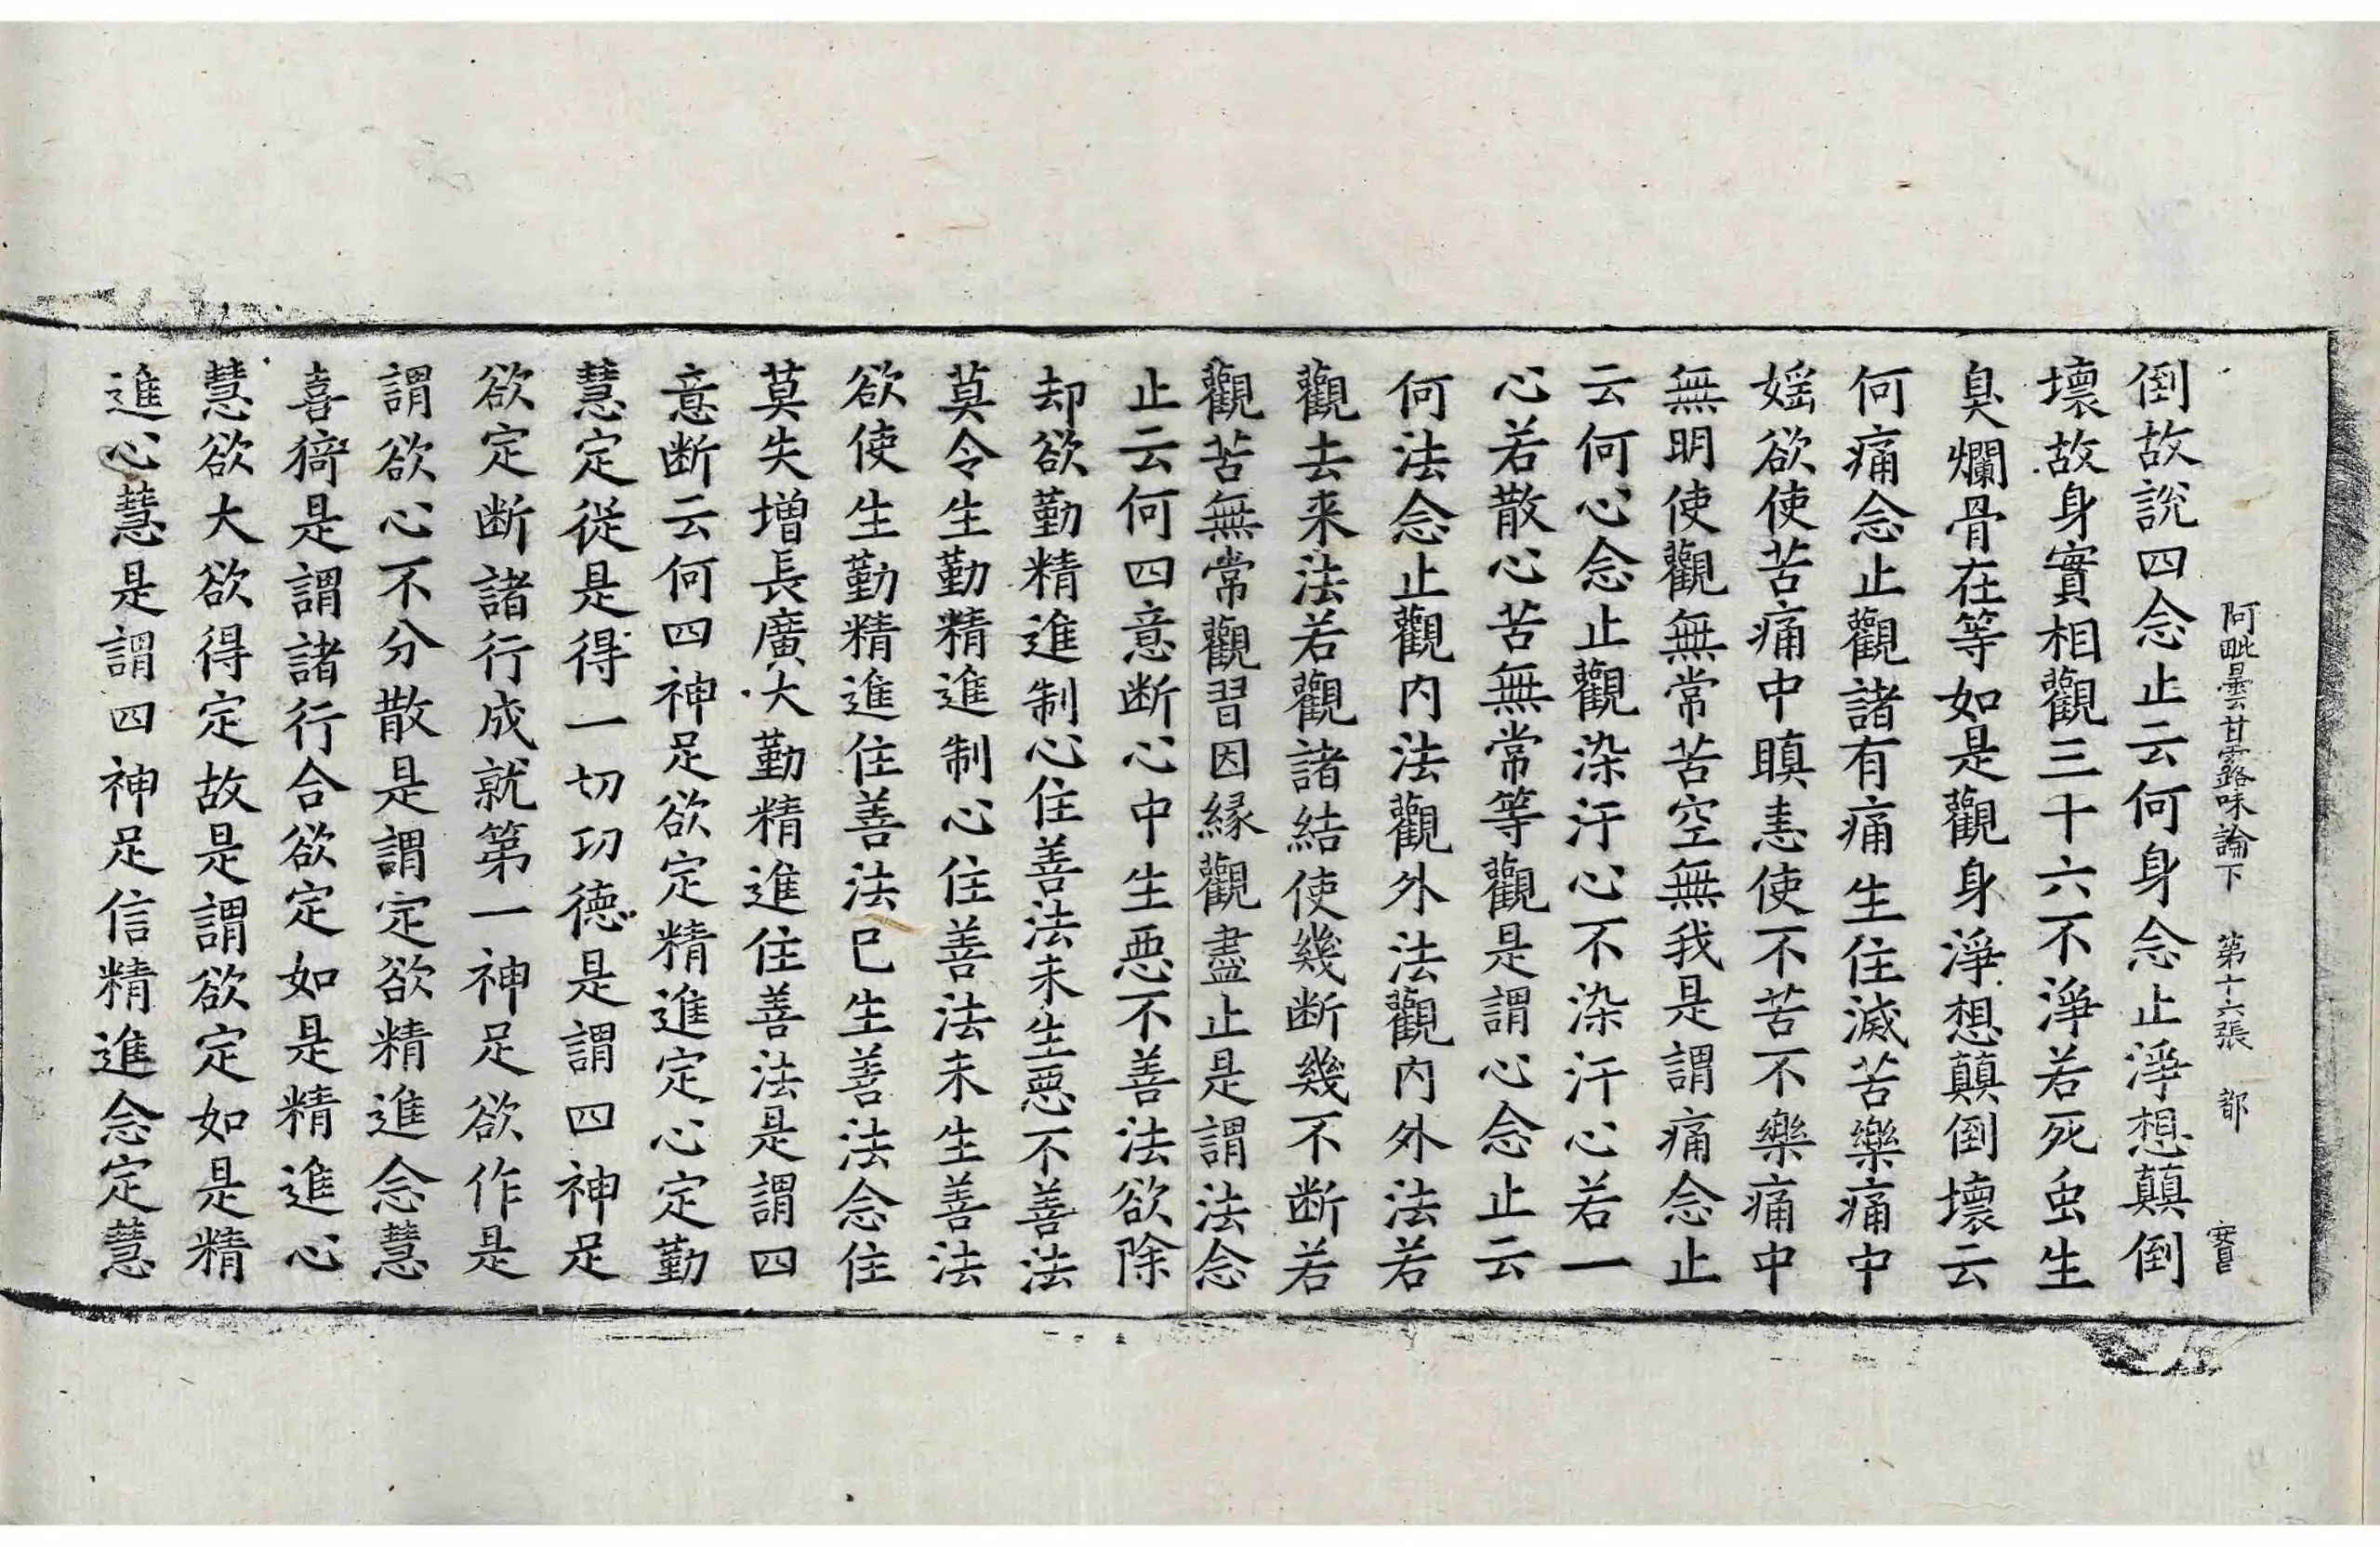 阿毗曇甘露味論下 第十六張 都
倒故說四念止云何身念止淨想顛倒
壞故身實相觀三十六不淨若死虫生
臭爛骨在等如是觀身淨想顛倒壞云
何痛念止觀諸有痛生住滅苦樂痛中
婬欲使苦痛中瞋恚使不苦不樂痛中
無明使觀無常苦空無我是謂痛念止
云何心念止觀染汙心不染汙心若一
心若散心苦無常等觀是謂心念止云
何法念止觀内法觀外法觀内外法若
觀去来法若觀諸結使幾断幾不断若
觀苦無常觀習因緣觀盡止是謂法念
止云何四意断心中生惡不善法欲除
却欲勤精進制心住善法未生惡不善法
莫令生勤精進制心住善法未生善法
欲使生勤精進住善法巳生善法念住
莫失增長廣大勤精進住善法是謂四
意断云何四神足欲定精進定心定勤
慧定從是得一切功德是謂四神足
欲定断諸行成就第一神足欲作是
謂欲心不分散是謂定欲精進念慧
喜猗是謂諸行合欲定如是精進心
慧欲大欲得定故是謂欲定如是精
進心慧是謂四神足信精進念定慧